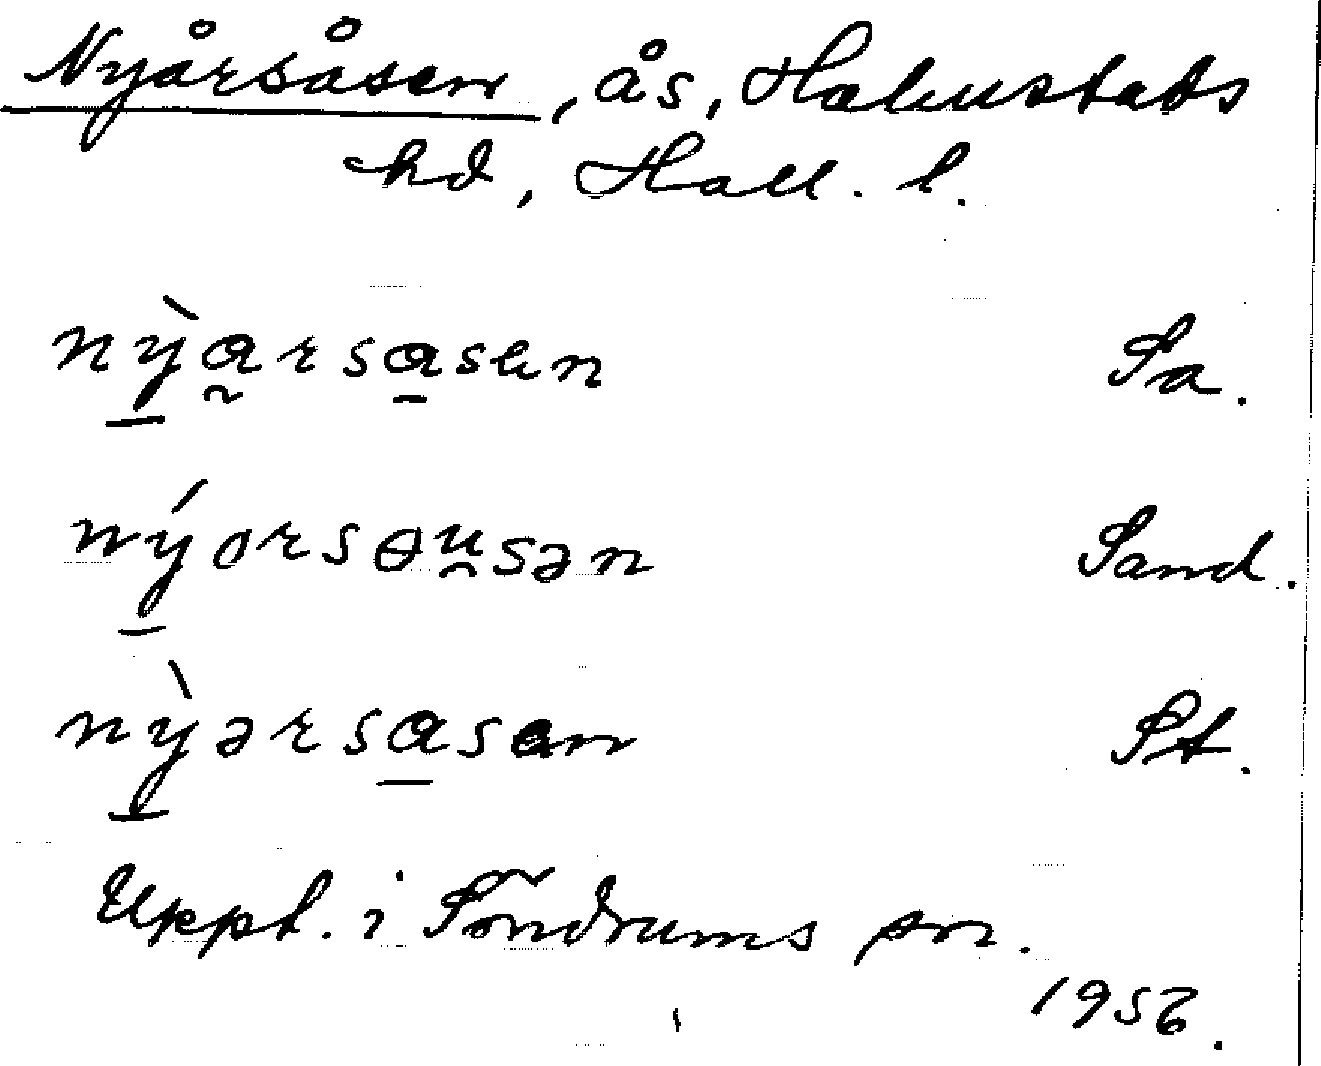 Nyårsåsen, ås, Halmstads
hd, Hall. l.
nỳ̱a̰rsa̱sen Sa.
ný̱orsɵu̯sən Sand.
nỳ̱ərsa̱sen St.
Uppt. i Söndrums sn.
1956.